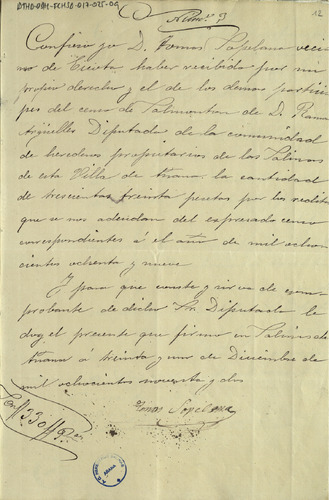 ATHA-DAH-FCHSO-017-025-09
12
Numº 9
Confieso yo D. Tomas Sopelana veci
no de Tuesta haber recibido por mi
propio derecho y el de los demas participi
pes del censo de Salmanton de D. Ramon
Argüelles Diputado de la comunidad
de herederos propietarios de las Salinas
de esta Villa de Añana la cantidad
de trescientas treinta pesetas por los reditos
que se nos adeudan del espresado censo
correspondientes á el año de mil ocho
cientos ochenta y nueve
Y para que conste y sirva de com
probante de dicho Sr. Diputado le
doy el presente que firmo en Salinas de
Añana a treinta y uno de Diciembre de
mil ochocientos noventa y dos
Tomas Sopelana
Son 330 Ptas